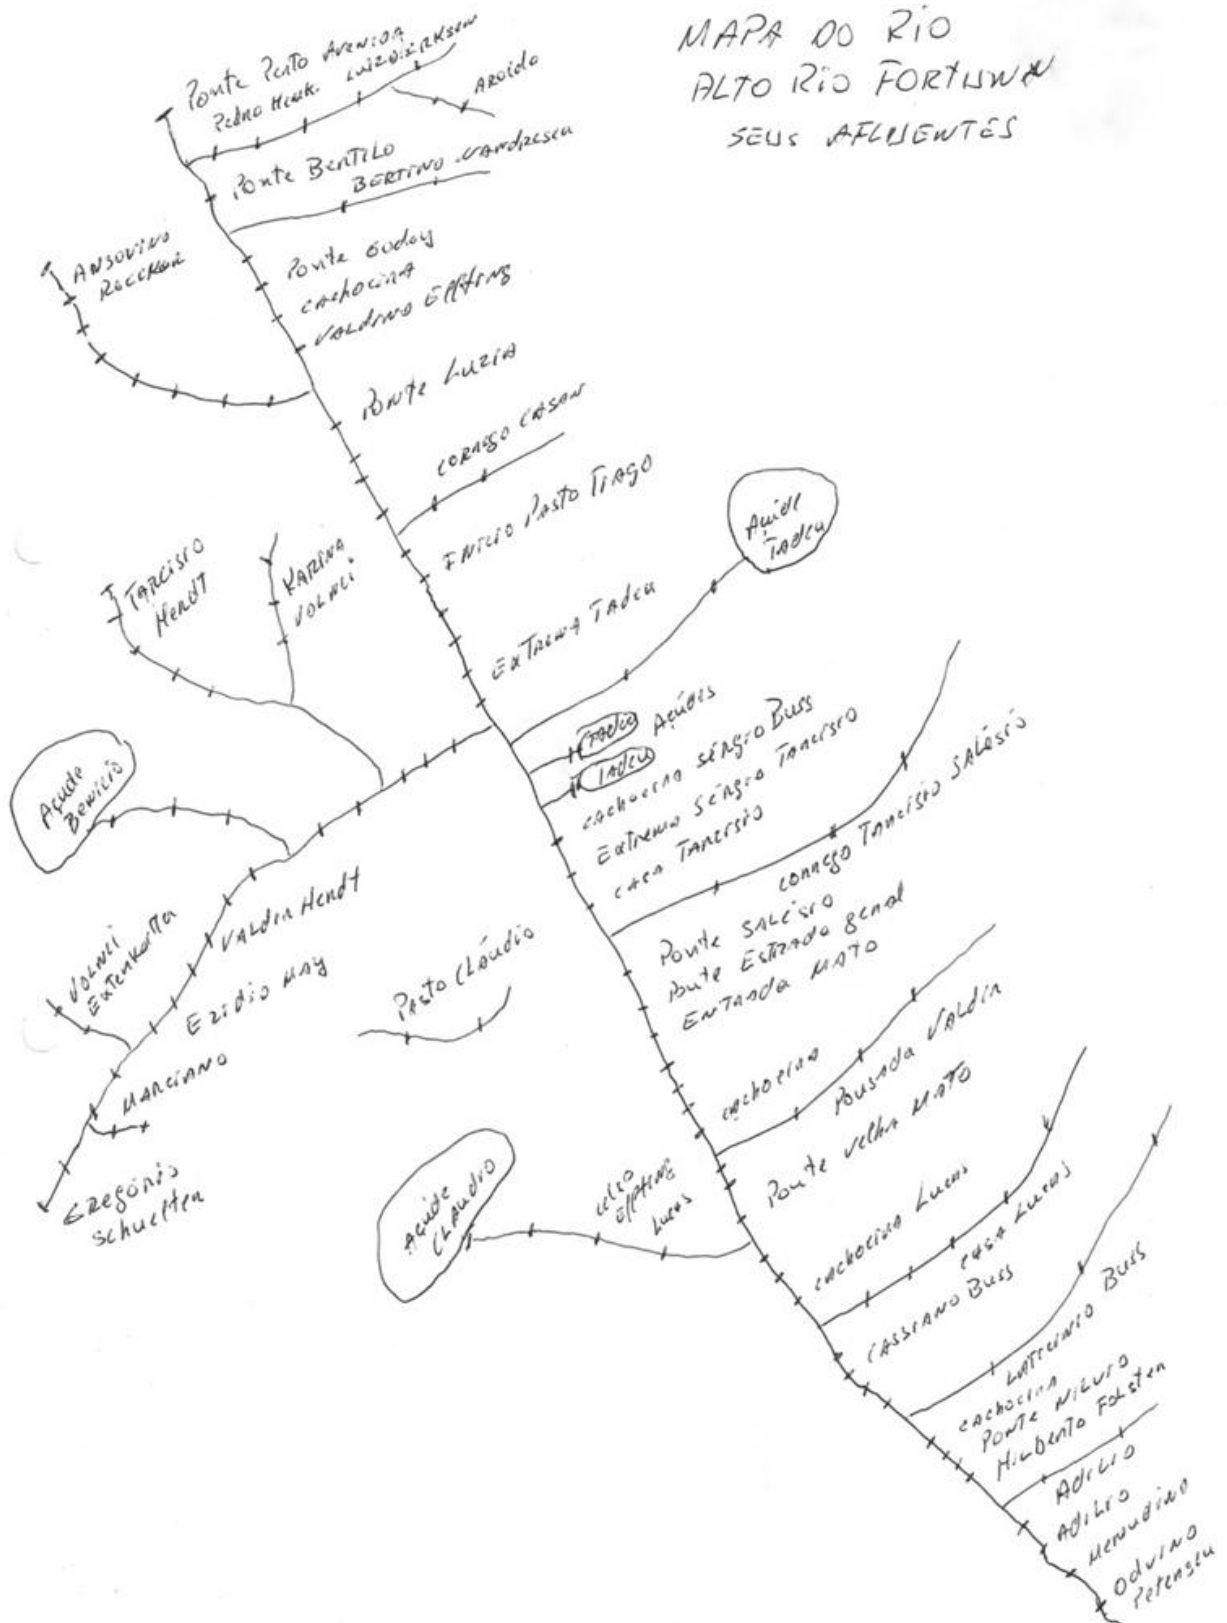 MAPA DO RIO
ALTO RIO FORTUNA
SEUS AFLUENTES
Ponte Perto AVENIDA
PEDRO HEUK. LUIZ DIRKSEN
AROIDO
Ponte BERTILO
BERTINO VANDRESEN
ANSOVINO
ROECKER
Ponte Goday
CACHOEIRA
VALDINO EFFTING
PONTE LUZIA
CORREGO CASAN
INICIO PASTO TIAGO
Açude
Tadeu
TARCISIO
Hendt
KARINA
VOLNEI
EXTREMA TADEU
Tadeu Açúdes
Tadeu
CACHOEIRA SÉRGIO Buss
Extremo SÉRGIO TARCISIO
CASA TARCISIO
CORREGO TARCISIO SALÉSIO
Açude
Benicio
VALDIR Hendt
VOLNEI
EZIDIO MAY
PASTO CLÁUDIO
Ponte SALÉSIO
Ponte ESTRADA GERAL
ENTRADA MATO
MARCIANO
CACHOEIRA
POUSADA VALDIR
Ponte velha MATO
GREGÓRIO
Schuelter
Açúde
CLAUDIO
CELSO
EFFTING
LUCAS
CACHOEIRA LUCAS
CASA LUCAS
CASSIANO BUSS
LATICINIO BUSS
CACHOEIRA
PONTE NILVIO
HILBERTO
ADILIO
ADILIO
ODVINO
Petersen